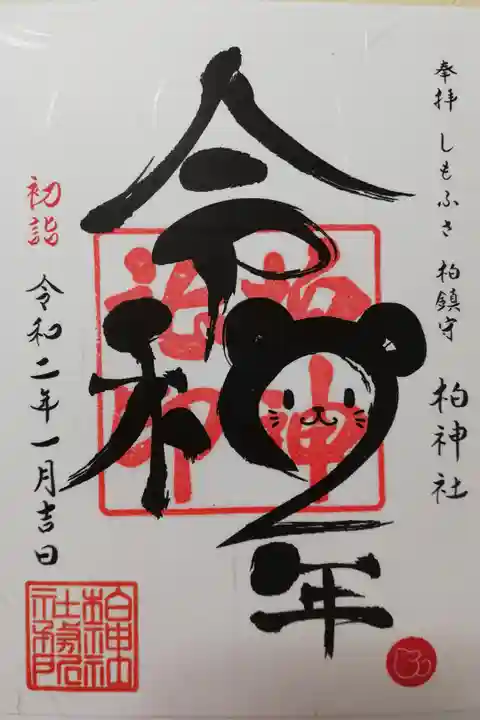 奉拝 しもふさ 柏鎮守 柏神社
令和2年
初詣
令和二年一月吉日
柏神社
社務所